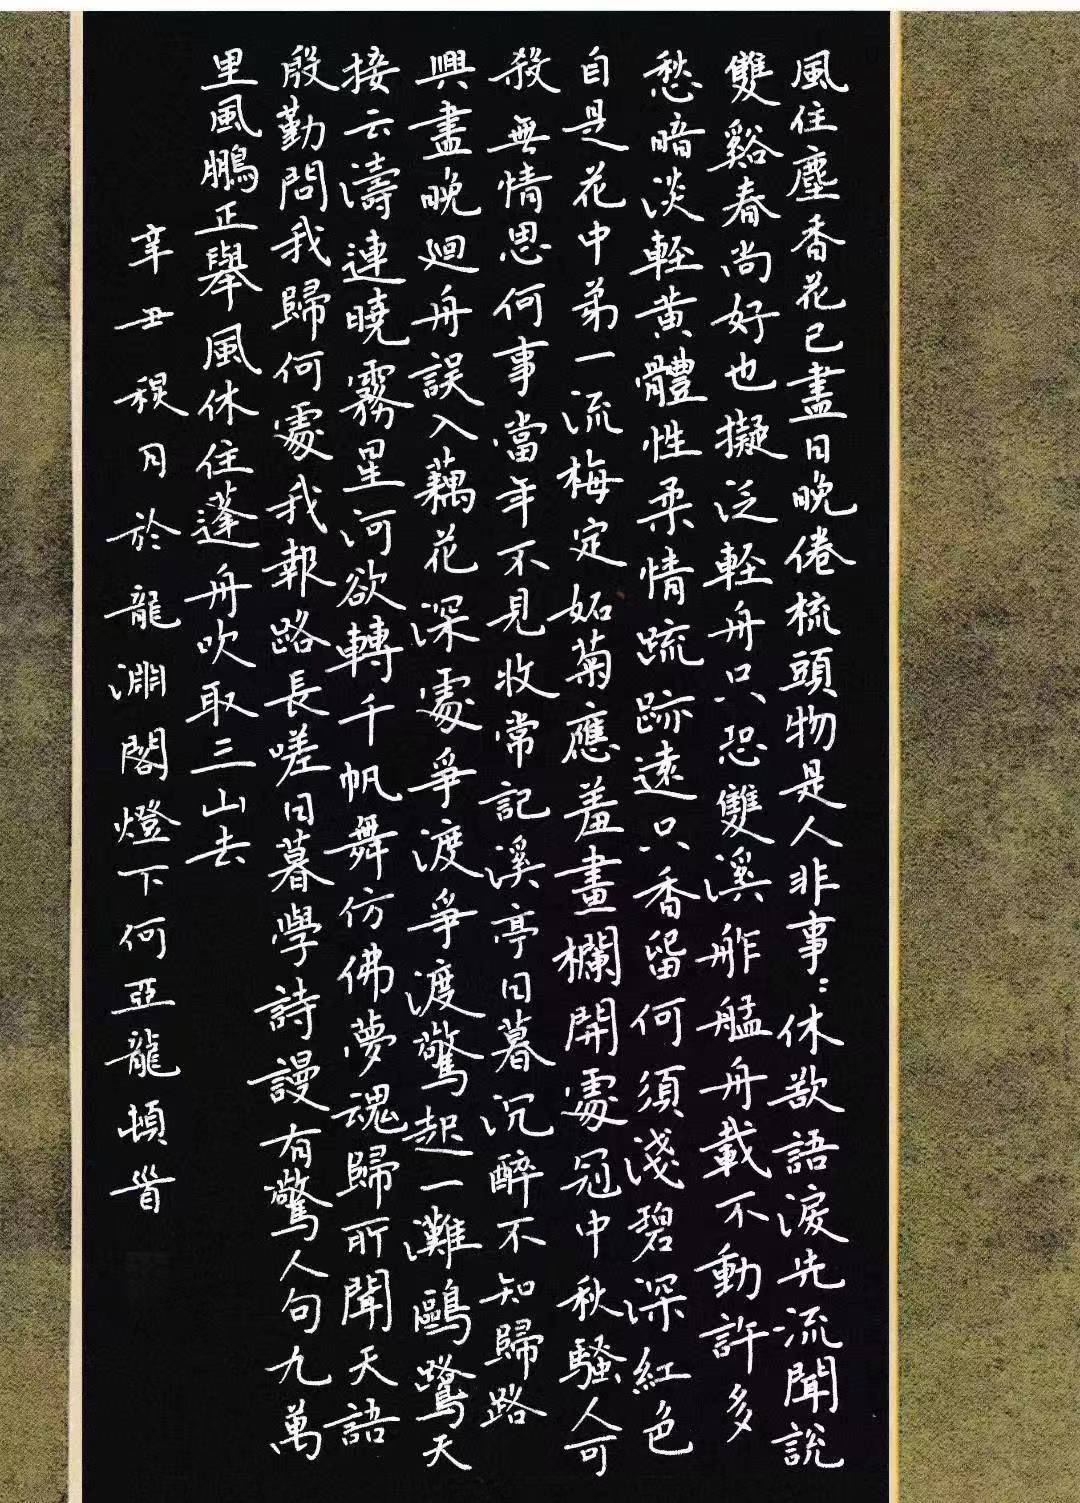 風住塵香花已盡日晚倦梳頭物是人非事::休欲語淚先流聞說
雙谿春尚好也擬泛輕舟只恐雙溪舴艋舟載不動許多
愁暗淡輕黃體性柔情疏跡遠只香留何須淺碧深紅色
自是花中弟一流梅定妬菊應羞畫欄開處冠中秋騷人可
殺無情思何事當年不見收常記溪亭日暮沉醉不知歸路
興盡晚迴舟誤入藕花深處爭渡爭渡驚起一灘鷗鷺天
接云濤連曉霧星河欲轉千帆舞仿佛夢魂歸所聞天語
殷勤問我歸何處我報路長嗟日暮學詩謾有驚人句九萬
里風鵬正舉風休住蓬舟吹取三山去
辛丑穓月於龍淵閣燈下何亞龍頓首